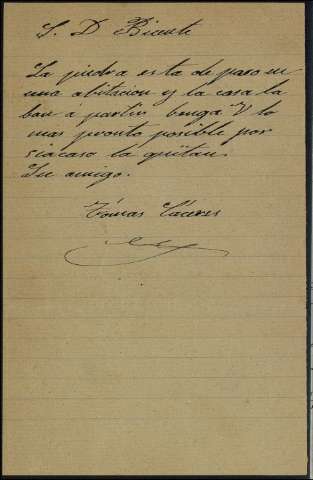 S. D Bicente
La piedra esta de paso en
una abitacion y la casa la
ban á partir benga V lo
mas pronto posible por
siacaso la quitan.
Su amigo.
Tomas Cáceres